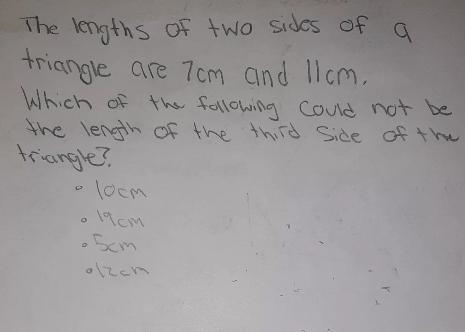 The lengths of two sides of a
triangle are 7cm and 11cm.
Which of the following could not be
the length of the third side of the
triangle?
• 10cm
• 19cm
• 5cm
• 12cm